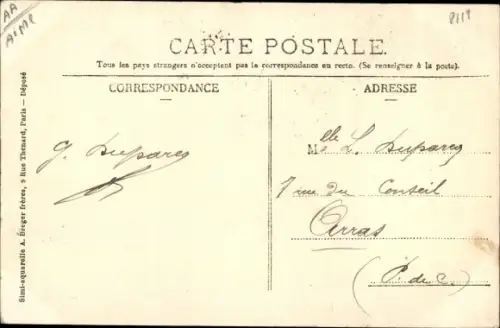 AA
P119
CARTE POSTALE.
Tous les pays étrangers n'acceptent pas la correspondance au recto. (Se renseigner à la poste).
CORRESPONDANCE
ADRESSE
G. Duparcq
Melle L. Duparcq
7 rue du Conseil
Arras
(P. de C.)
Simi-aquarelle A. Breger frères, 9 Rue Thénard, Paris — Déposé